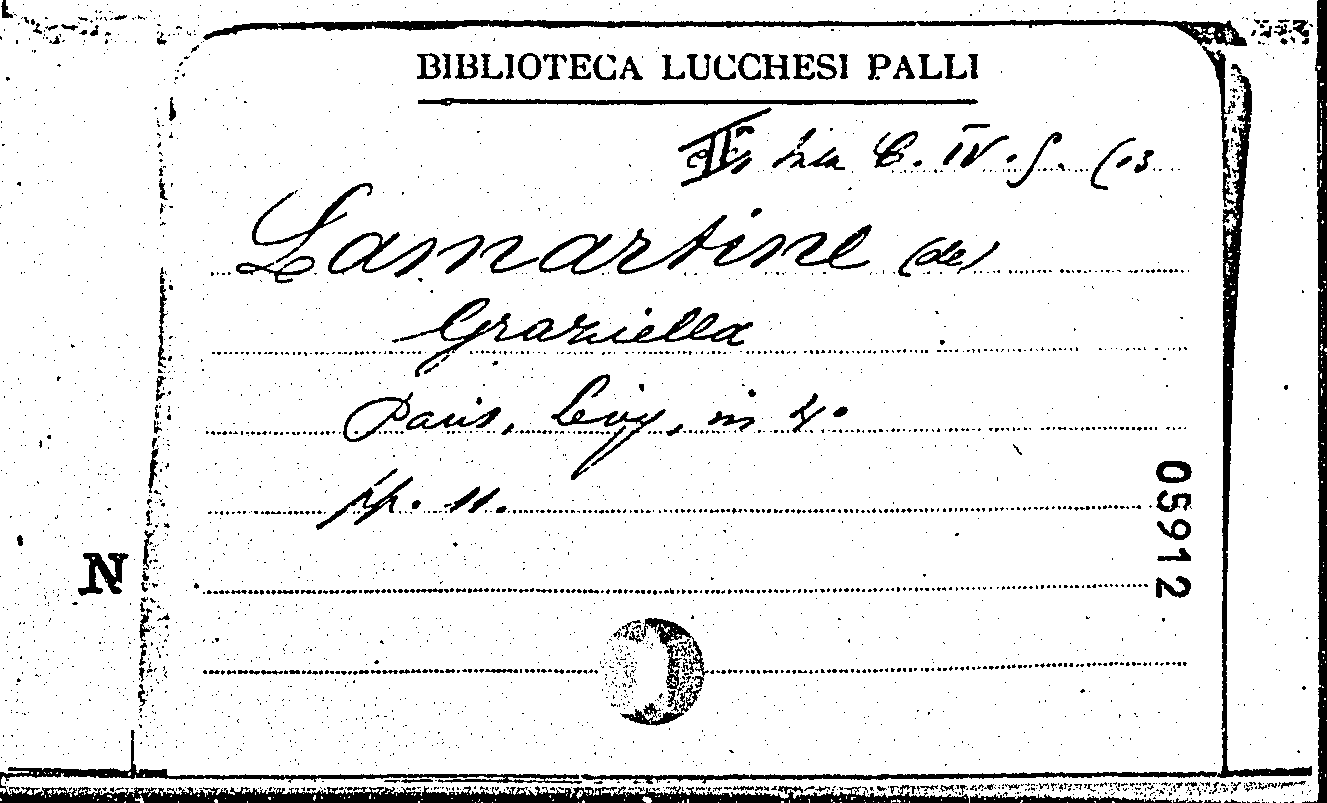 BIBLIOTECA LUCCHESI PALLI
C. IV. 5. (13
Lamartine (de)
Graziella
Paris, Levy, in 4°
pp. 11.
05912
N